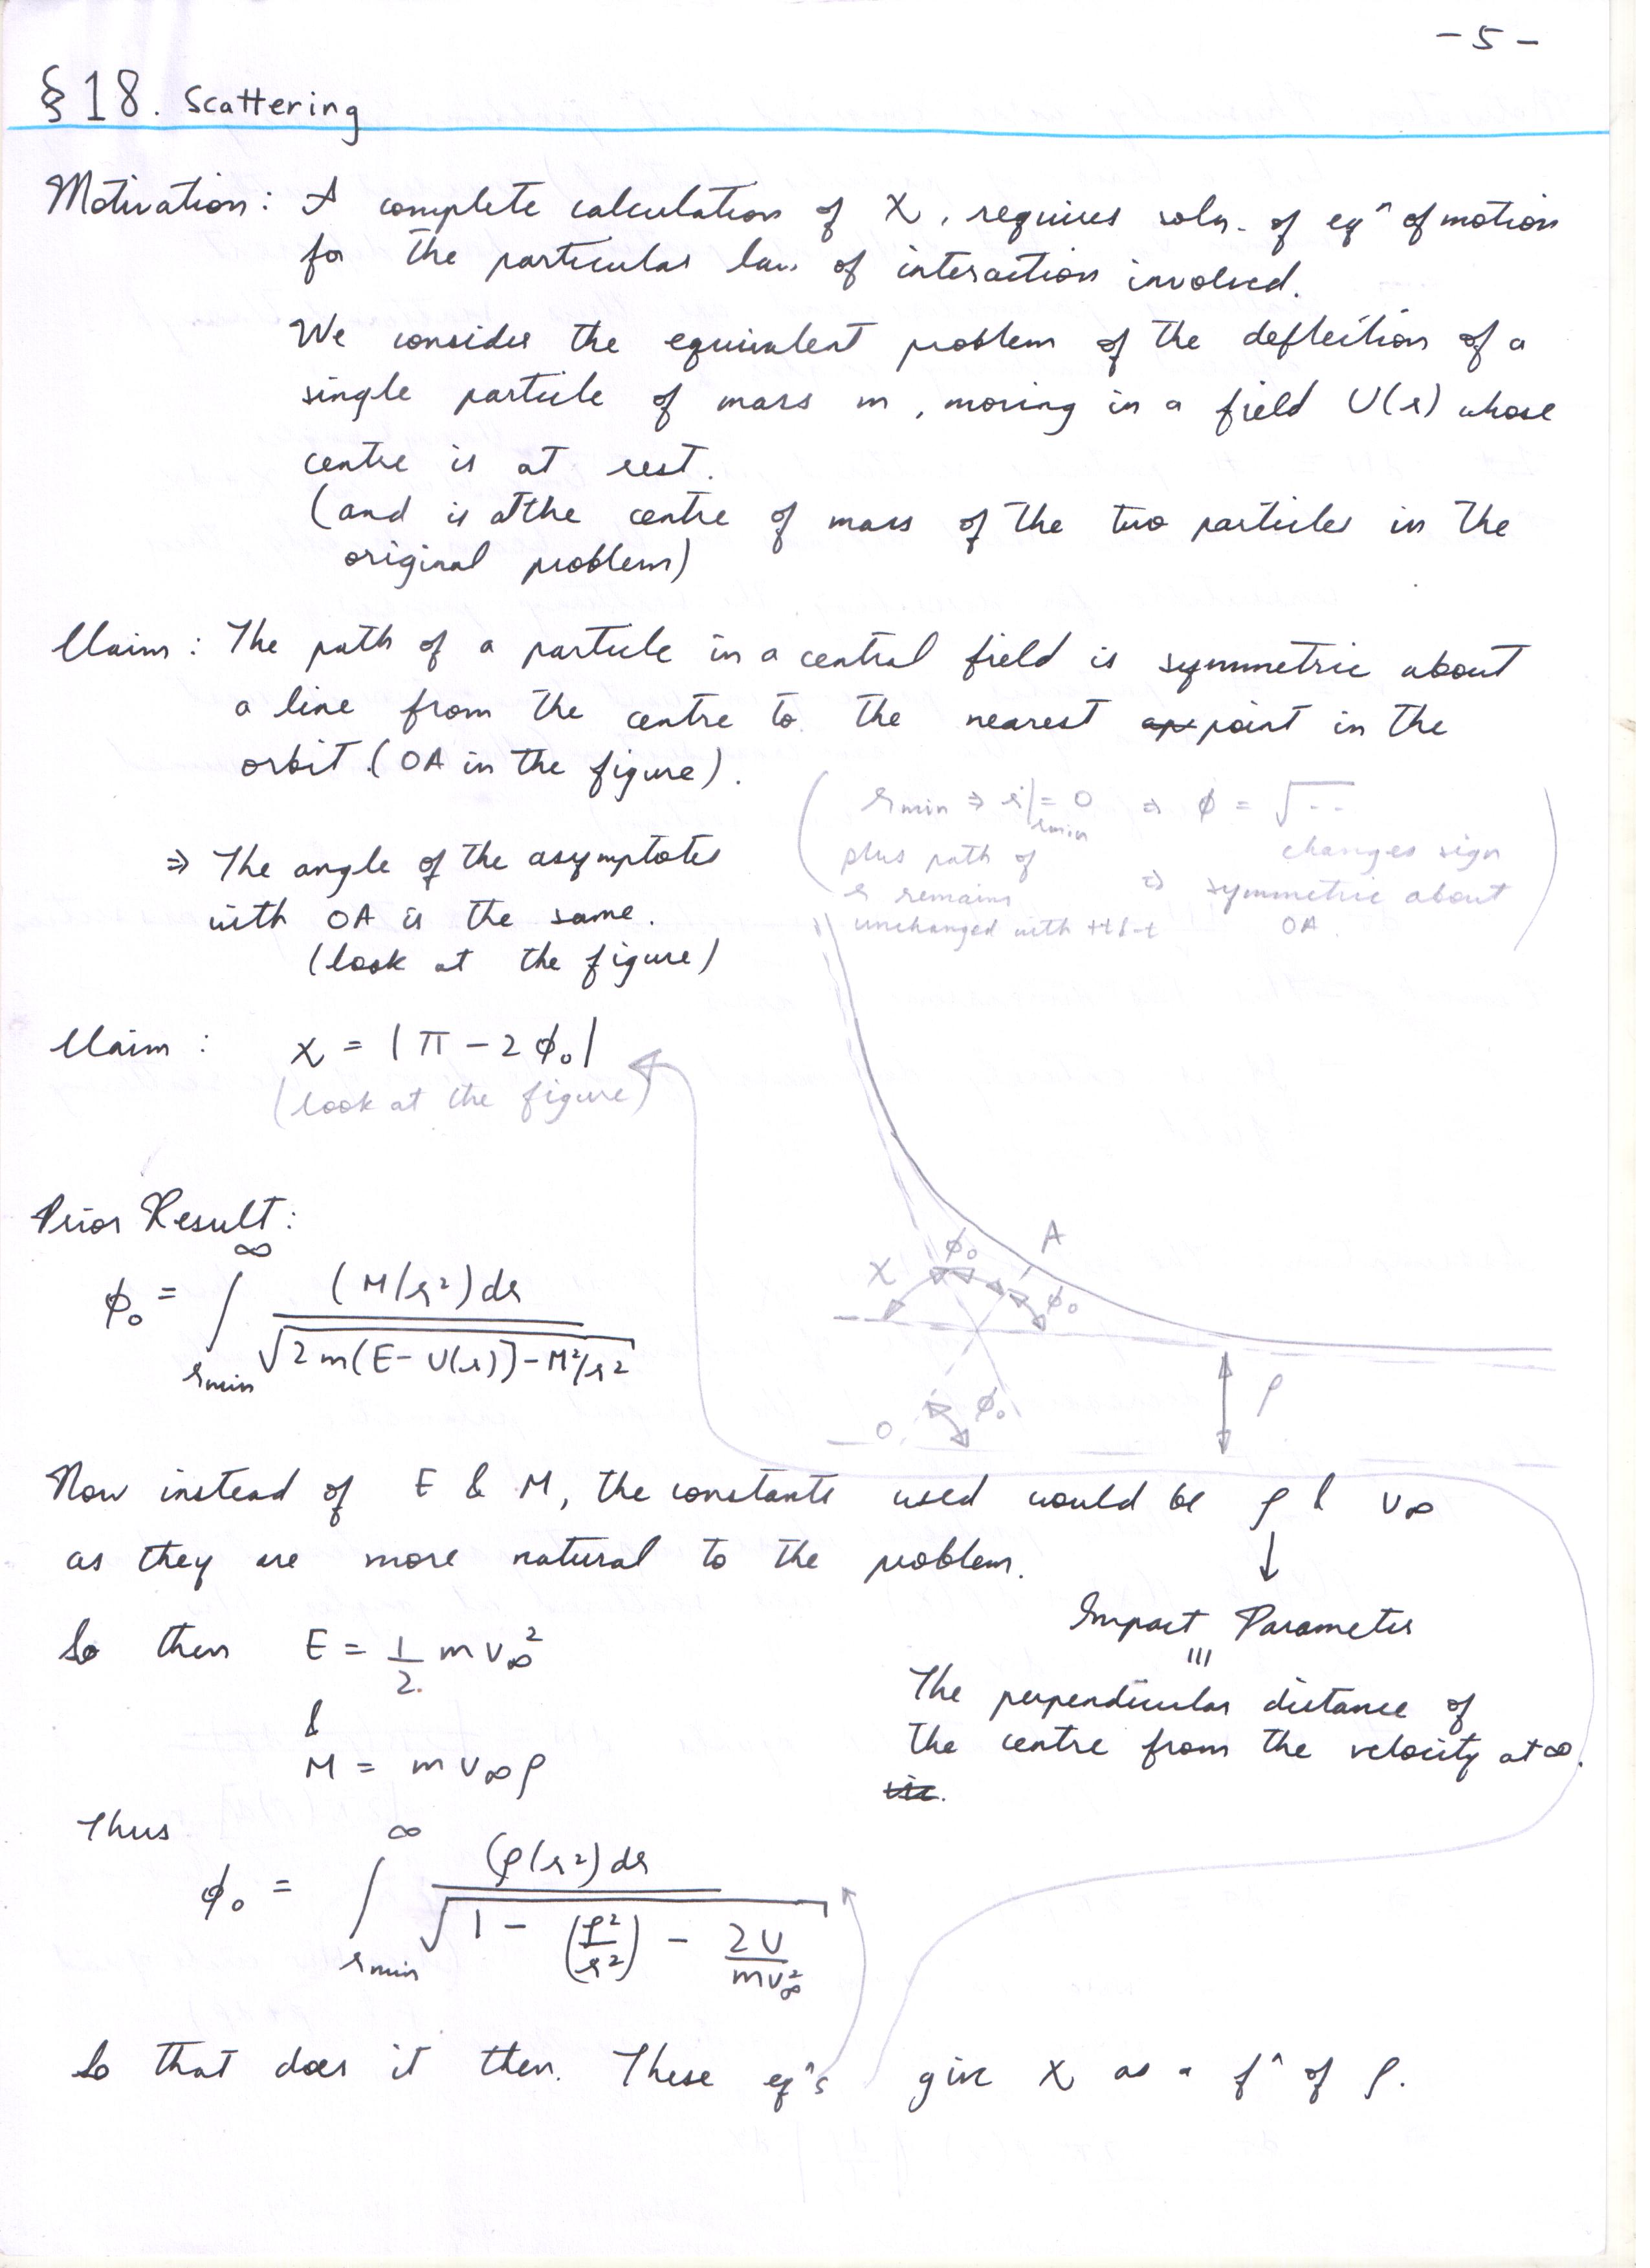 -5-
§18. Scattering
Motivation: A complete calculation of χ, requires soln. of eqⁿ of motion
for the particular law of interaction involved.
We consider the equivalent problem of the deflection of a
single particle of mass m, moving in a field U(r) whose
centre is at rest.
(and is at the centre of mass of the two particles in the
original problem)
Claim: The path of a particle in a central field is symmetric about
a line from the centre to the nearest point in the
orbit. (OA in the figure).
(r_min ⇒ ṙ|_{r_min} = 0 ⇒ φ = √-- changes sign
plus path of r remains unchanged with +t & -t ⇒ symmetric about OA.)
⇒ The angle of the asymptotes
with OA is the same.
(look at the figure)
Claim: χ = |π - 2φ₀|
(look at the figure)
A
φ₀
χ
φ₀
φ₀
O
ρ
Prior Result:
φ₀ = ∫_{r_min}^{∞} (M/r²)dr / √{2m[E-U(r)]-M²/r²}
Now instead of E & M, the constants used would be ρ & v∞
as they are more natural to the problem.
↓
Impact Parameter
≡
The perpendicular distance of
the centre from the velocity at ∞.
So then E = 1/2 mv∞²
&
M = mv∞ρ
Thus
φ₀ = ∫_{r_min}^{∞} (ρ/r²)dr / √{1 - (ρ²/r²) - 2U/mv∞²}
So that does it then. These eqⁿs give χ as a fⁿ of ρ.